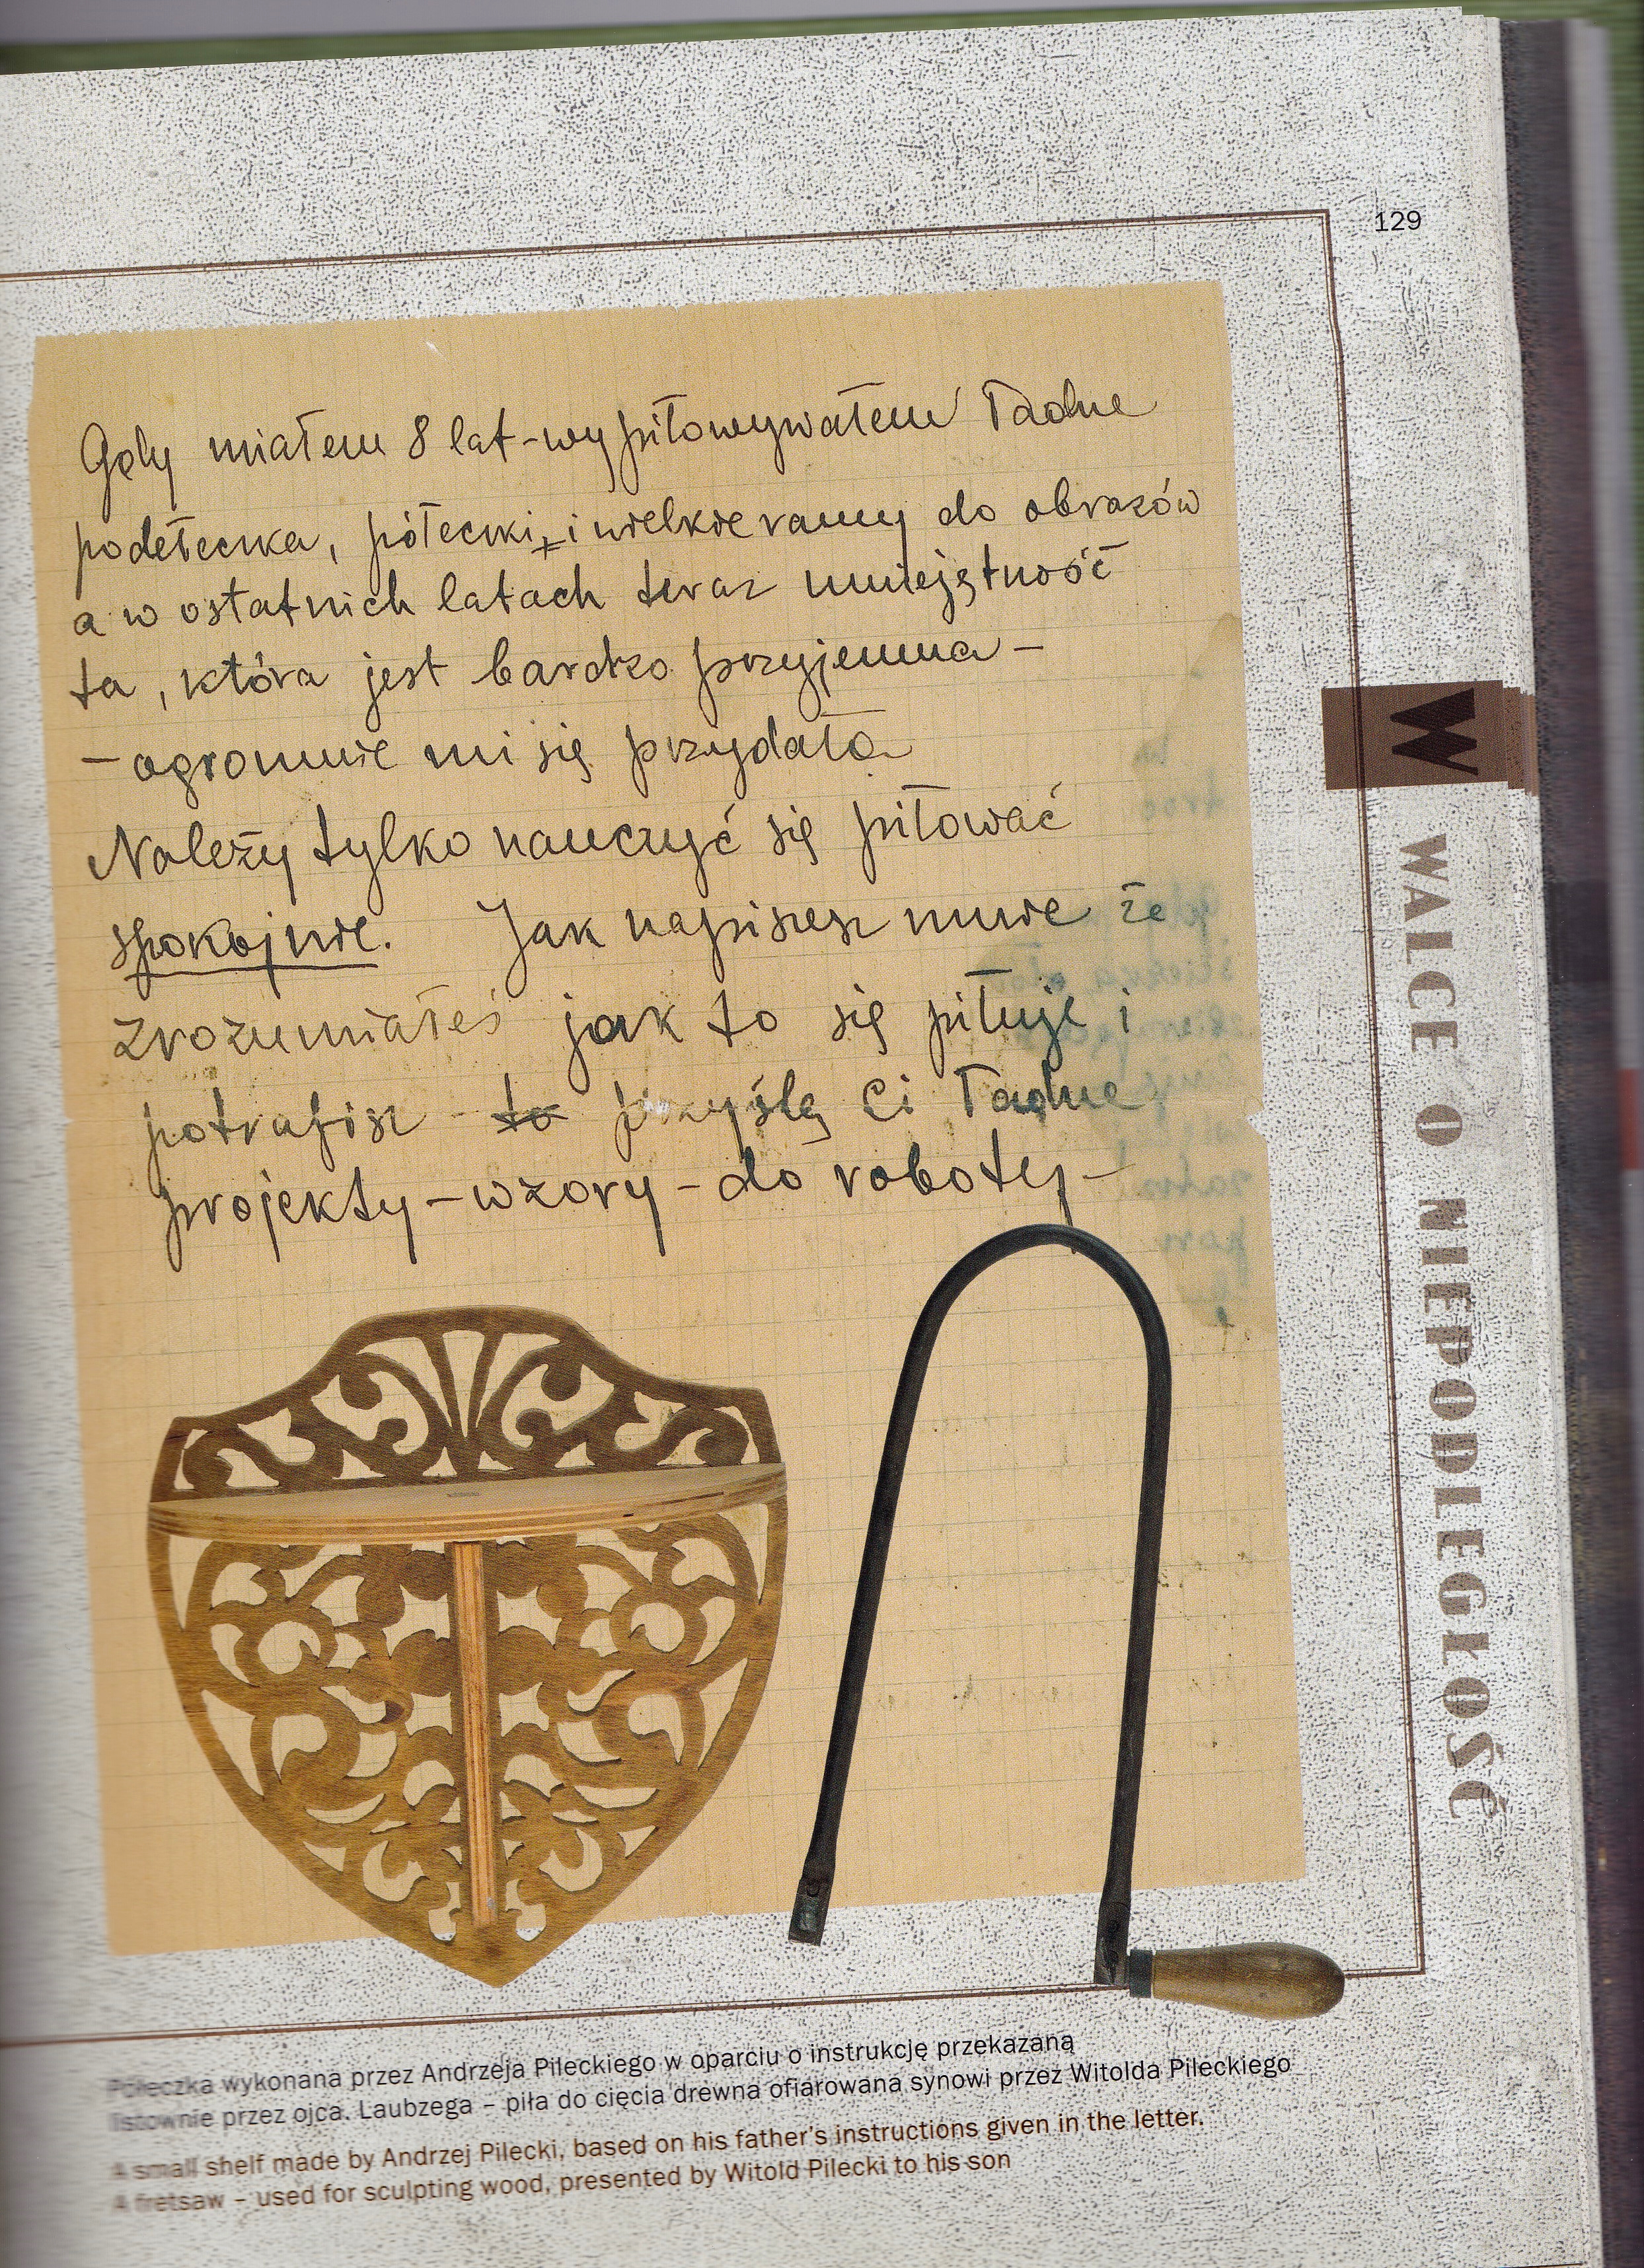 129
Gdy miałem 8 lat - wypiłowywałem ładne
pudełeczka, półeczki, i wielkie ramy do obrazów
a w ostatnich latach teraz umiejętność
ta, która jest bardzo przyjemna -
- ogromnie mi się przydała
Należy tylko nauczyć się piłować
spokojnie. Jak napiszesz mnie że
zrozumiałeś jak to się piłuje i
potrafisz - to przyślę Ci ładne
projekty - wzory - do roboty -
W WALCE O NIEPODLEGŁOŚĆ
Półeczka wykonana przez Andrzeja Pileckiego w oparciu o instrukcję przekazaną
listownie przez ojca. Laubzega – piła do cięcia drewna ofiarowana synowi przez Witolda Pileckiego
A small shelf made by Andrzej Pilecki, based on his father's instructions given in the letter.
A fretsaw – used for sculpting wood, presented by Witold Pilecki to his son